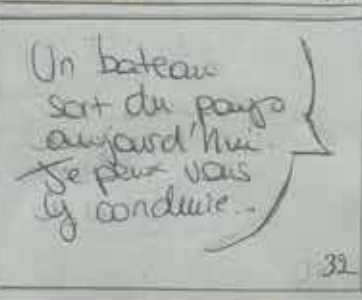 Un bateau
sort du pays
aujourd'hui.
Je peux vous
y conduire...
32